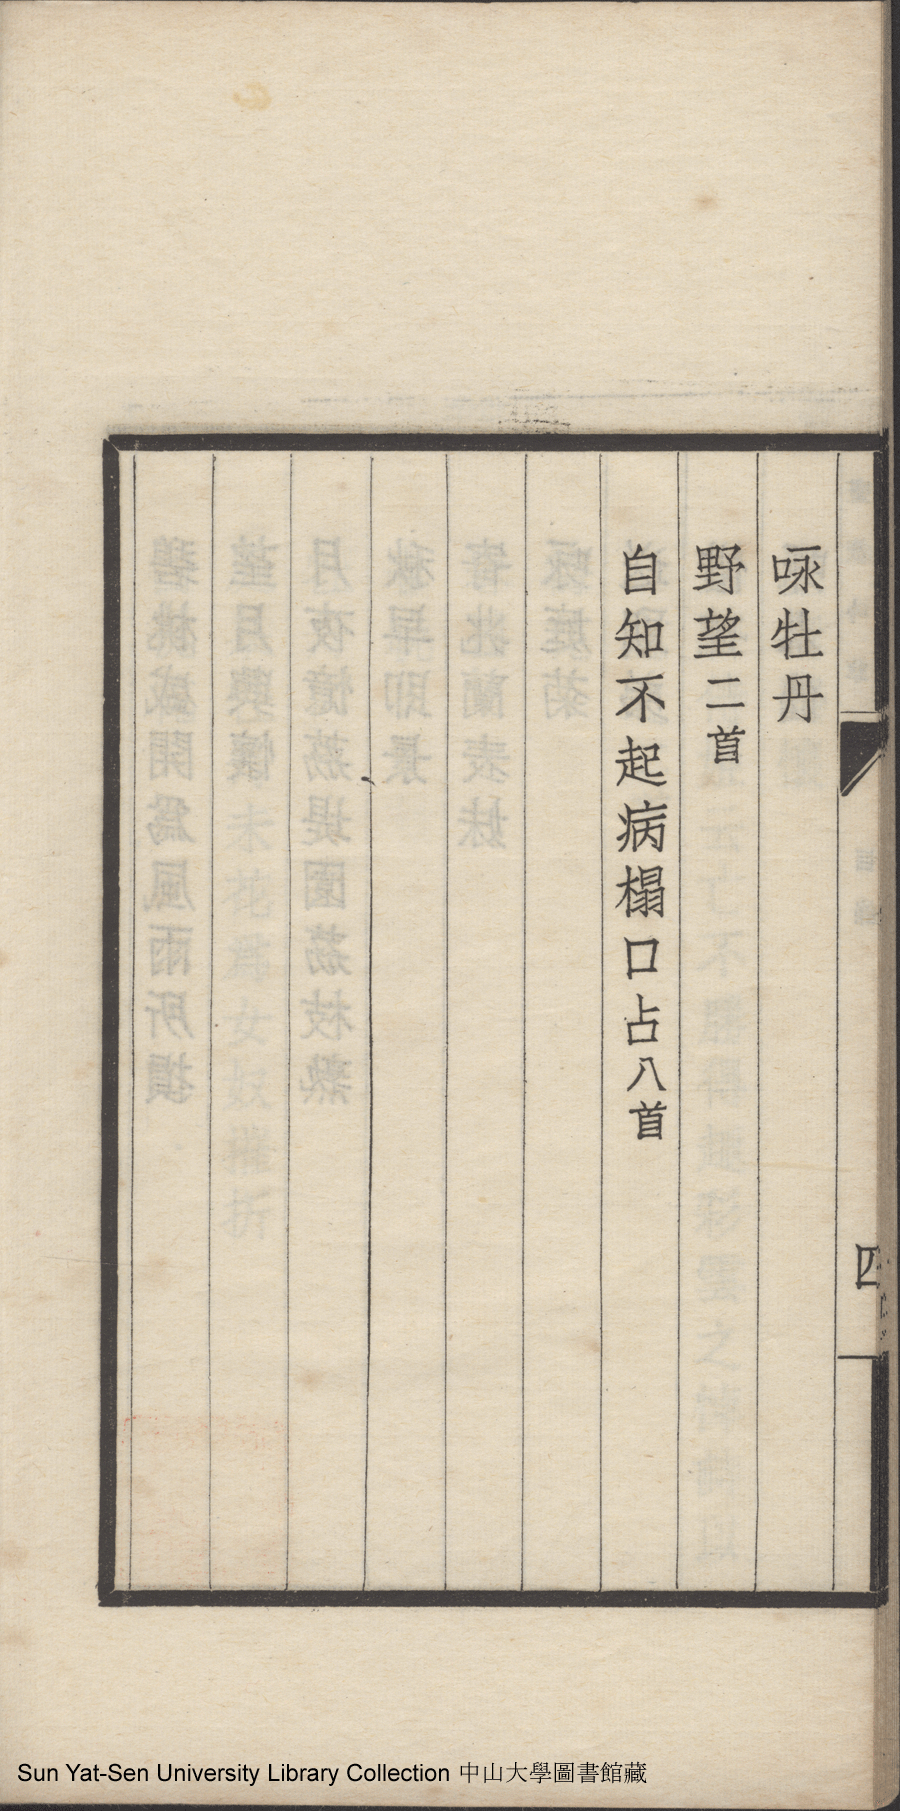 咏牡丹
野望二首
自知不起病榻口占八首
四
Sun Yat-Sen University Library Collection 中山大學圖書館藏